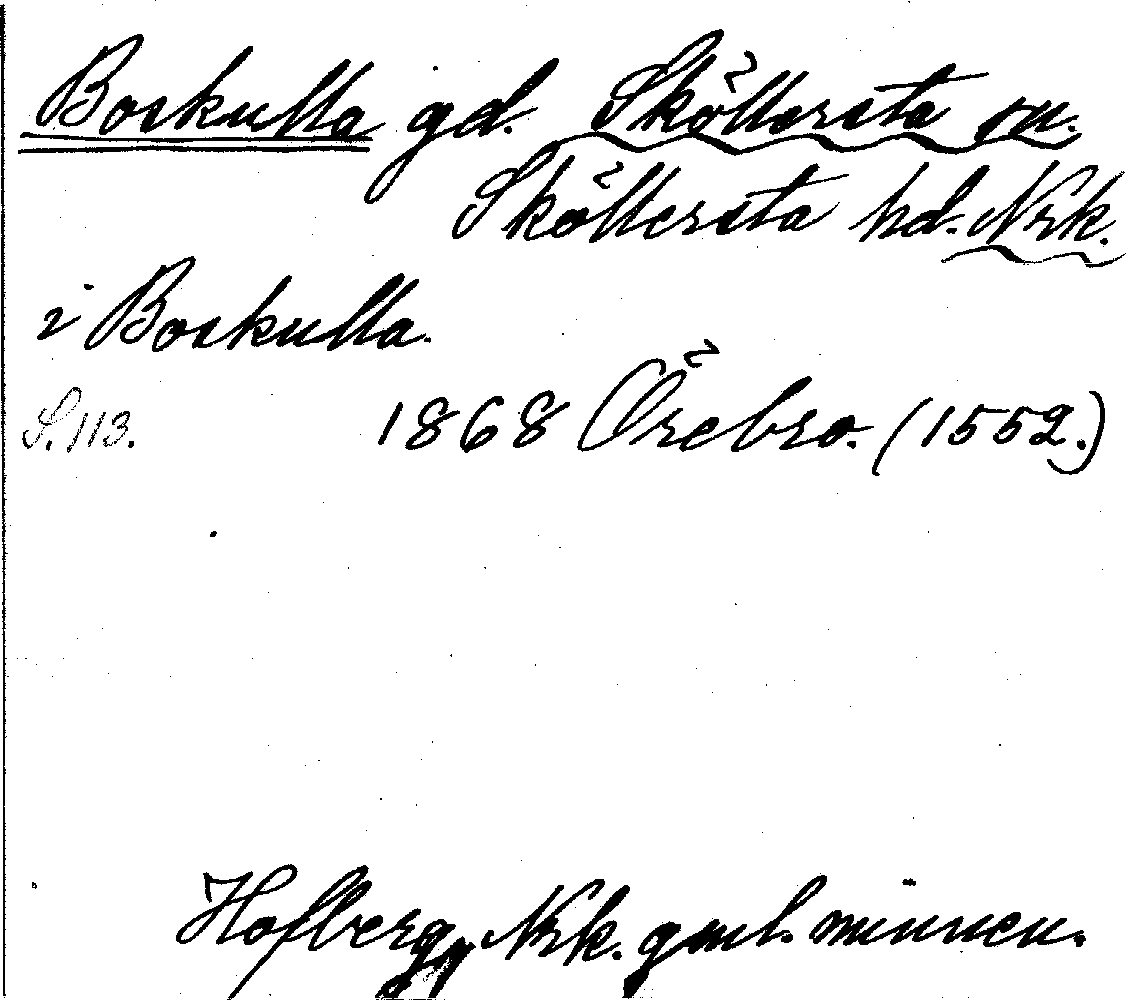 Boskulla gd. Sköllersta sn.
Sköllersta hd. Nrk.
i Boskulla.
S. 113. 1868 Örebro. (1552.)
Hofberg, Nrk. gml. minnen.